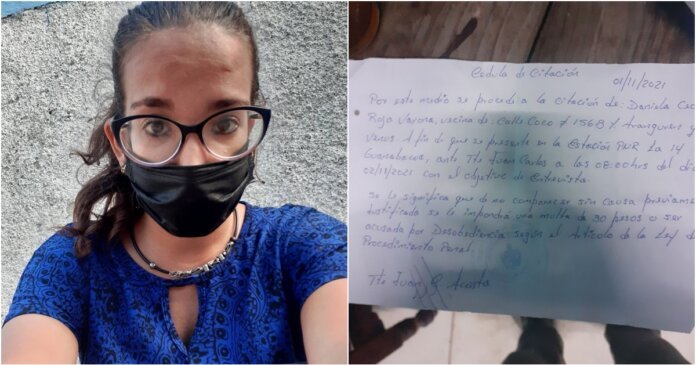 Cédula de Citación
01/11/2021
Por este medio se procede a la citación de: Daniela
Rojo Varona, vecina de: Calle Coco # 156B % Aranguren y
Venus. A fin de que se presente en la Estación PNR La 14
Guanabacoa, ante Tte Juan Carlos a las 08:00 hrs del
02/11/2021 con el objetivo de Entrevista.
Se le significa que de no comparecer sin causa
justificada se le impondrá una multa de 30 pesos o ser
acusada por Desobediencia según el Artículo de la Ley de
Procedimiento Penal.
Tte Juan C Acosta